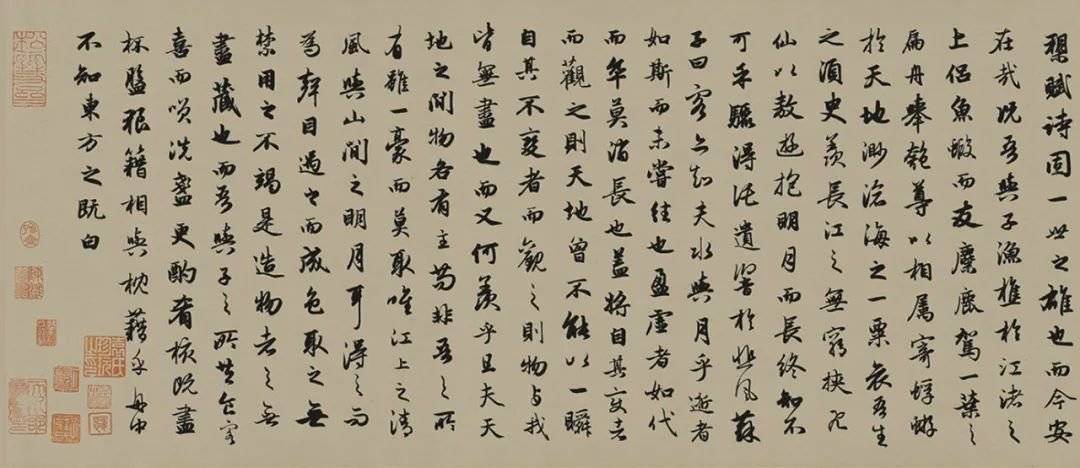 槊賦詩固一世之雄也而今安
在哉况吾與子漁樵於江渚之
上侣魚蝦而友麋鹿駕一葉之
扁舟舉匏尊以相属寄蜉蝣
於天地渺滄海之一粟哀吾生
之須臾羨長江之無窮挾飛
仙以敖遊抱明月而長終知不
可乎驟得託遺響於悲风蘇
子曰客亦知夫水與月乎逝者
如斯而未嘗往也盈虛者如代
而卒莫消長也盖將自其变者
而觀之則天地曾不能以一瞬
自其不變者而觀之則物与我
皆無盡也而又何羨乎且夫天
地之間物各有主苟非吾之所
有雖一豪而莫取唯江上之清
風與山間之明月耳得之而
為聲目遇之而成色取之無
禁用之不竭是造物者之無
盡藏也而吾與子之所共食客
喜而笑洗盞更酌肴核既盡
杯盤狼籍相與枕藉乎舟中
不知東方之既白